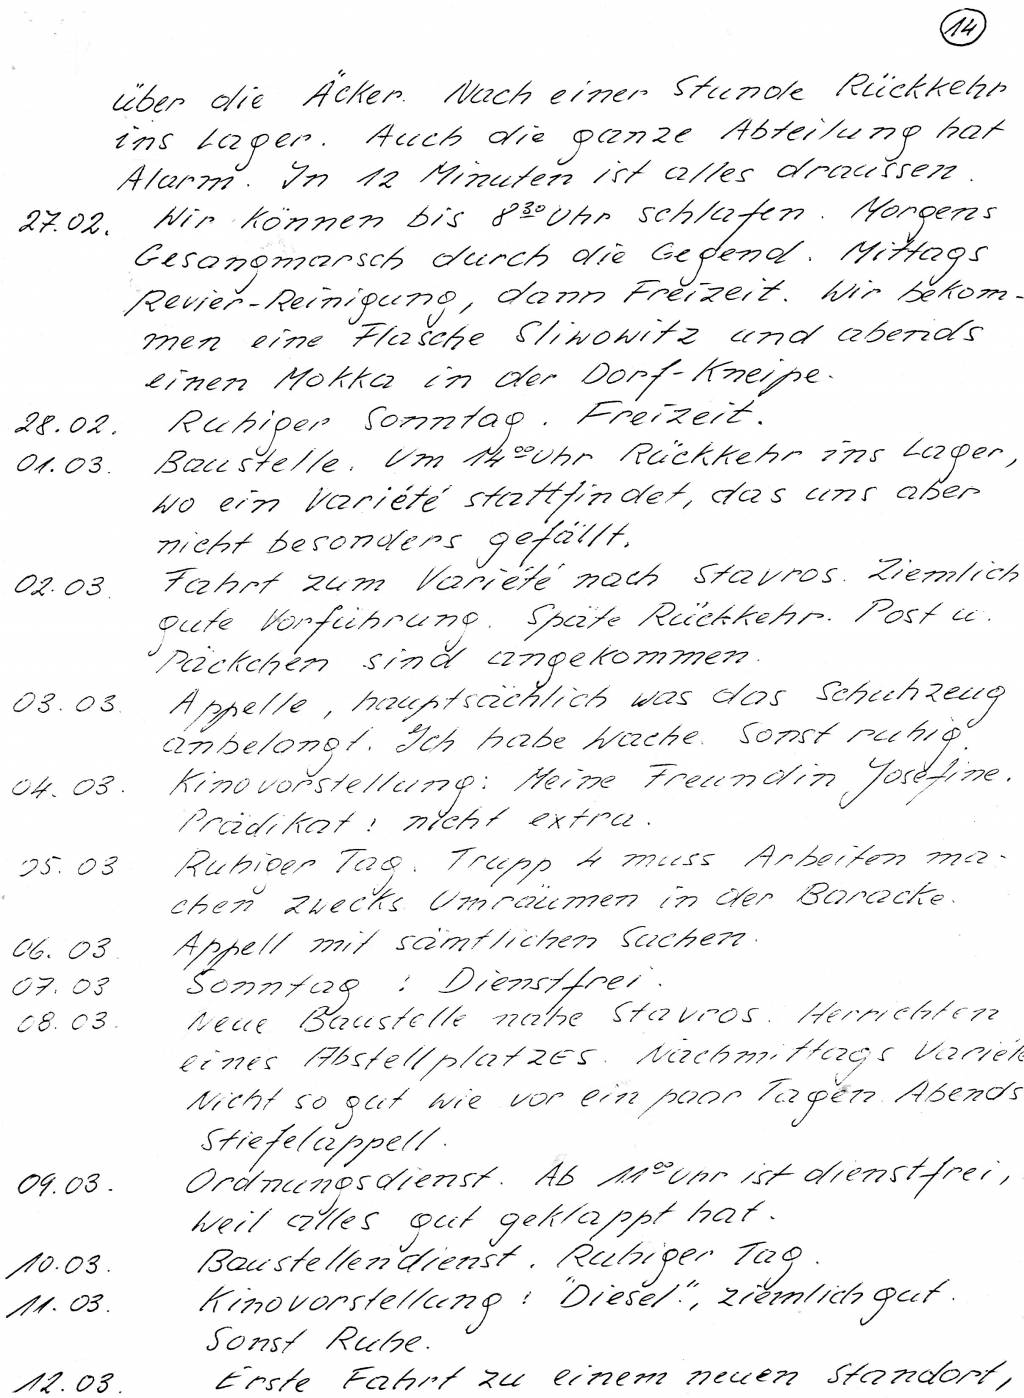 14
über die Äcker. Nach einer Stunde Rückkehr
ins Lager. Auch die ganze Abteilung hat
Alarm. In 12 Minuten ist alles draussen.
27.02. Wir können bis 8³⁰ Uhr schlafen. Morgens
Gesangmarsch durch die Gegend. Mittags
Revier-Reinigung, dann Freizeit. Wir bekom-
men eine Flasche Sliwowitz und abends
einen Mokka in der Dorf-Kneipe.
28.02. Ruhiger Sonntag. Freizeit.
01.03. Baustelle. Um 14⁰⁰ Uhr Rückkehr ins Lager,
wo ein Variété stattfindet, das uns aber
nicht besonders gefällt.
02.03. Fahrt zum Variété nach Stavros. Ziemlich
gute Vorführung. Späte Rückkehr. Post u.
Päckchen sind angekommen.
03.03. Appelle, hauptsächlich was das Schuhzeug
anbelangt. Ich habe Wache. Sonst ruhig.
04.03. Kinovorstellung: Meine Freundin Josefine.
Prädikat: nicht extra.
05.03 Ruhiger Tag. Trupp 4 muss Arbeiten ma-
chen zwecks Umräumen in der Baracke.
06.03. Appell mit sämtlichen Sachen.
07.03 Sonntag: Dienstfrei.
08.03. Neue Baustelle nahe Stavros. Herrichten
eines Abstellplatzes. Nachmittags Variété
Nicht so gut wie vor ein paar Tagen. Abends
Stiefelappell.
09.03. Ordnungsdienst. Ab 11⁰⁰ Uhr ist dienstfrei,
weil alles gut geklappt hat.
10.03. Baustellendienst. Ruhiger Tag.
11.03. Kinovorstellung: "Diesel", ziemlich gut.
Sonst Ruhe.
12.03. Erste Fahrt zu einem neuen Standort,